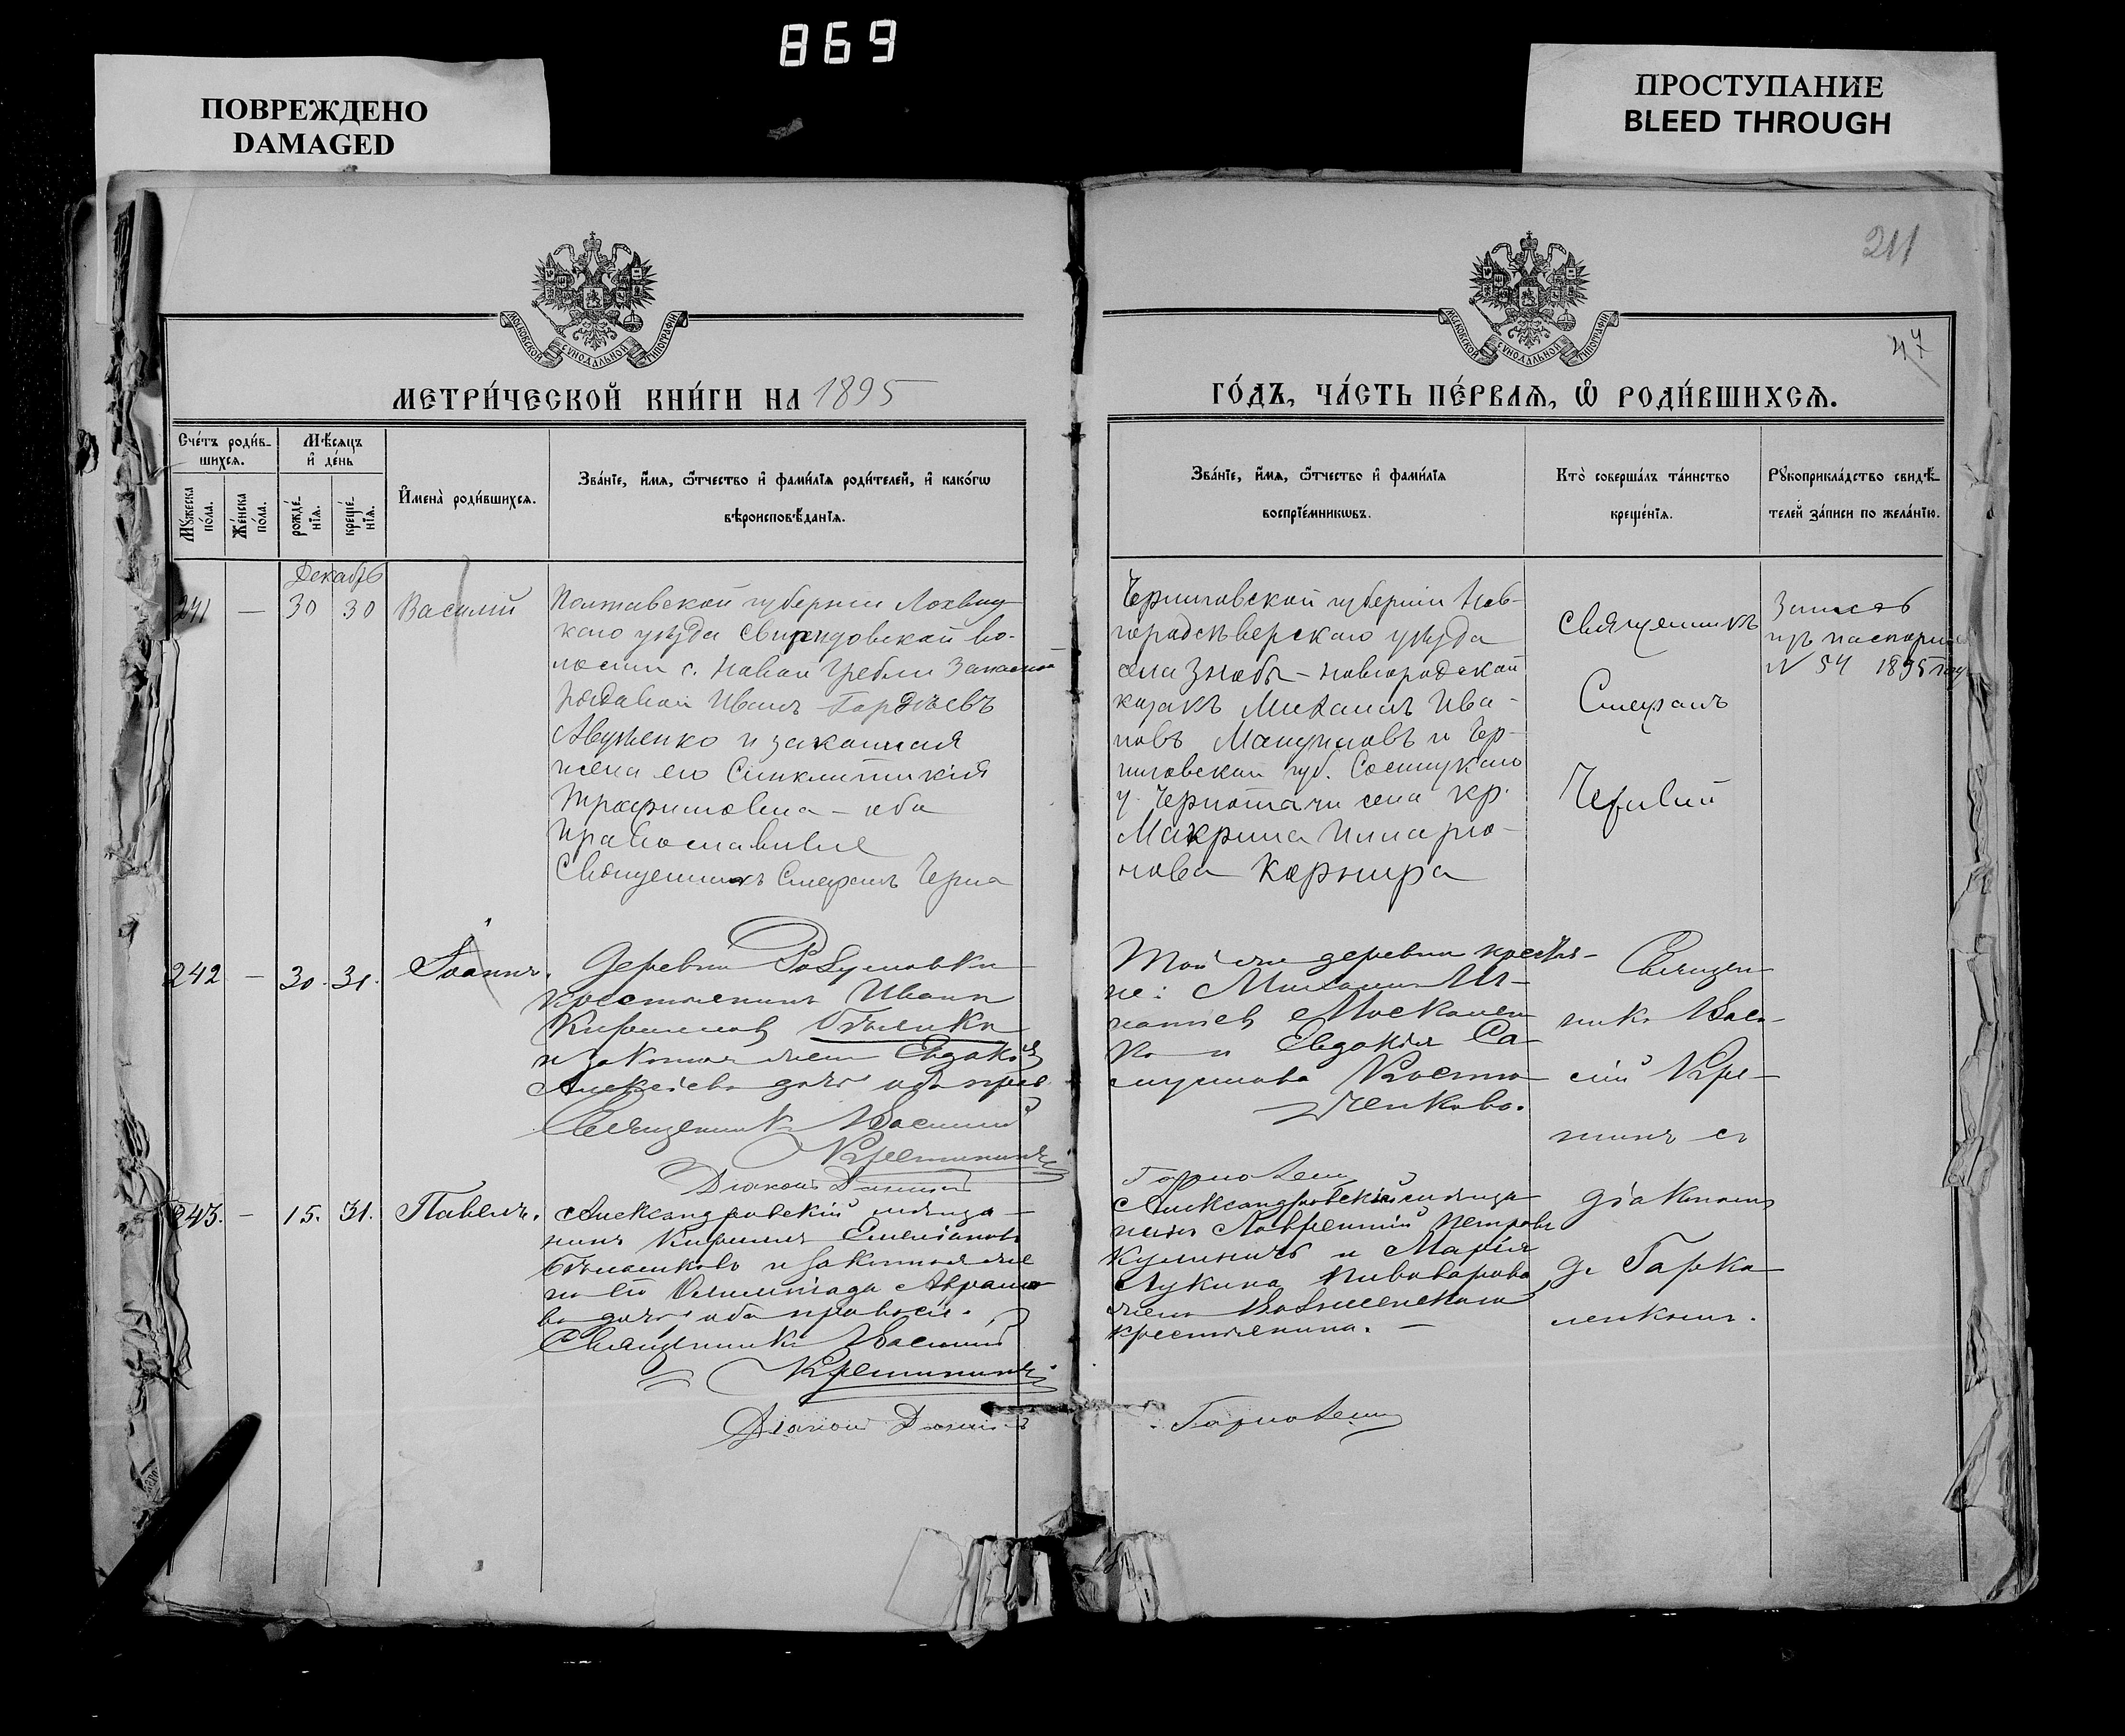 869
ПОВРЕЖДЕНО
DAMAGED
ПРОСТУПАНИЕ
BLEED THROUGH
211
47
МОСКОВСКОЙ СѴНОДАЛЬНОЙ ТИПОГРАФІИ
МОСКОВСКОЙ СѴНОДАЛЬНОЙ ТИПОГРАФІИ
МЕТРИ́ЧЕСКОЙ КНИ́ГИ НА 1895
ГО́ДЪ, ЧА́СТЬ ПЕ́РВАЯ, Ѽ РОДИ́ВШИХСЯ.
Сче́тъ роди́в-
шихся.
Мꙋжеска по́ла.
Же́нска по́ла.
Мѣсяцъ
и҆ де́нь
рожде́нїя.
креще́нїя.
И҆мена̀ роди́вшихся.
Зва́нїе, и҆́мя, ѻ҆́тчество и҆ фами́лїя роди́телей, и҆ како́гѡ
вѣроисповѣ́данїя.
Зва́нїе, и҆́мя, ѻ҆́тчество и҆ фами́лїя
воспрїе́мникѡвъ.
Кто̀ соверша́лъ та́инство
креще́нїя.
Рꙋкоприкла́дство свидѣ́-
телей за́писи по жела́нїю.
Декабрь
241 — 30 30 Василій
Полтавской губерніи Лохвиц-
каго уѣзда Свиридовской во-
лости с. Новой Гребли запасной
рядовой Иванъ Гордѣевъ
и законная
жена его Синклитикія
Трофимовна — оба
православные
Священникъ Стефанъ
Черниговской губерніи Нов-
городсѣверскаго уѣзда
села Знобь-Новгородской
козакъ Михаилъ Ива-
новъ Мануиловъ и Чер-
ниговской губ. Сосницкаго
у. села кр.
Макрина Иларіо-
нова
Священникъ
Стефанъ
Запись
изъ паспорта
N 54 1895 года
242 — 30. 31. Іоаннъ.
Деревни Розумовки
крестьянинъ Иванъ
Кирилловъ
и законная жена Евдокія
Алексѣева дочь оба прав.
Священникъ Василій
Кремининъ
Діаконъ
Той же деревни крестья-
не: Михаилъ Иг-
натіев Москален-
ко и Евдокія Са-
муилова Костю-
ченкова.
Священ-
никъ Васи-
лій Кре-
мининъ съ
243. — 15. 31. Павелъ.
Александровскій мѣща-
нинъ Кириллъ Емеліановъ
и законная же-
на его Олимпіада Авраамо-
ва дочь, оба правосл.
Священникъ Василій
Кремининъ
Діаконъ
Александровскій мѣща-
нинъ Лаврентій Петровъ
и Марія
Лукина Пивоварова
жена Вознесенскаго
крестьянина. —
діакономъ
Д. Гарка-
ленкомъ.